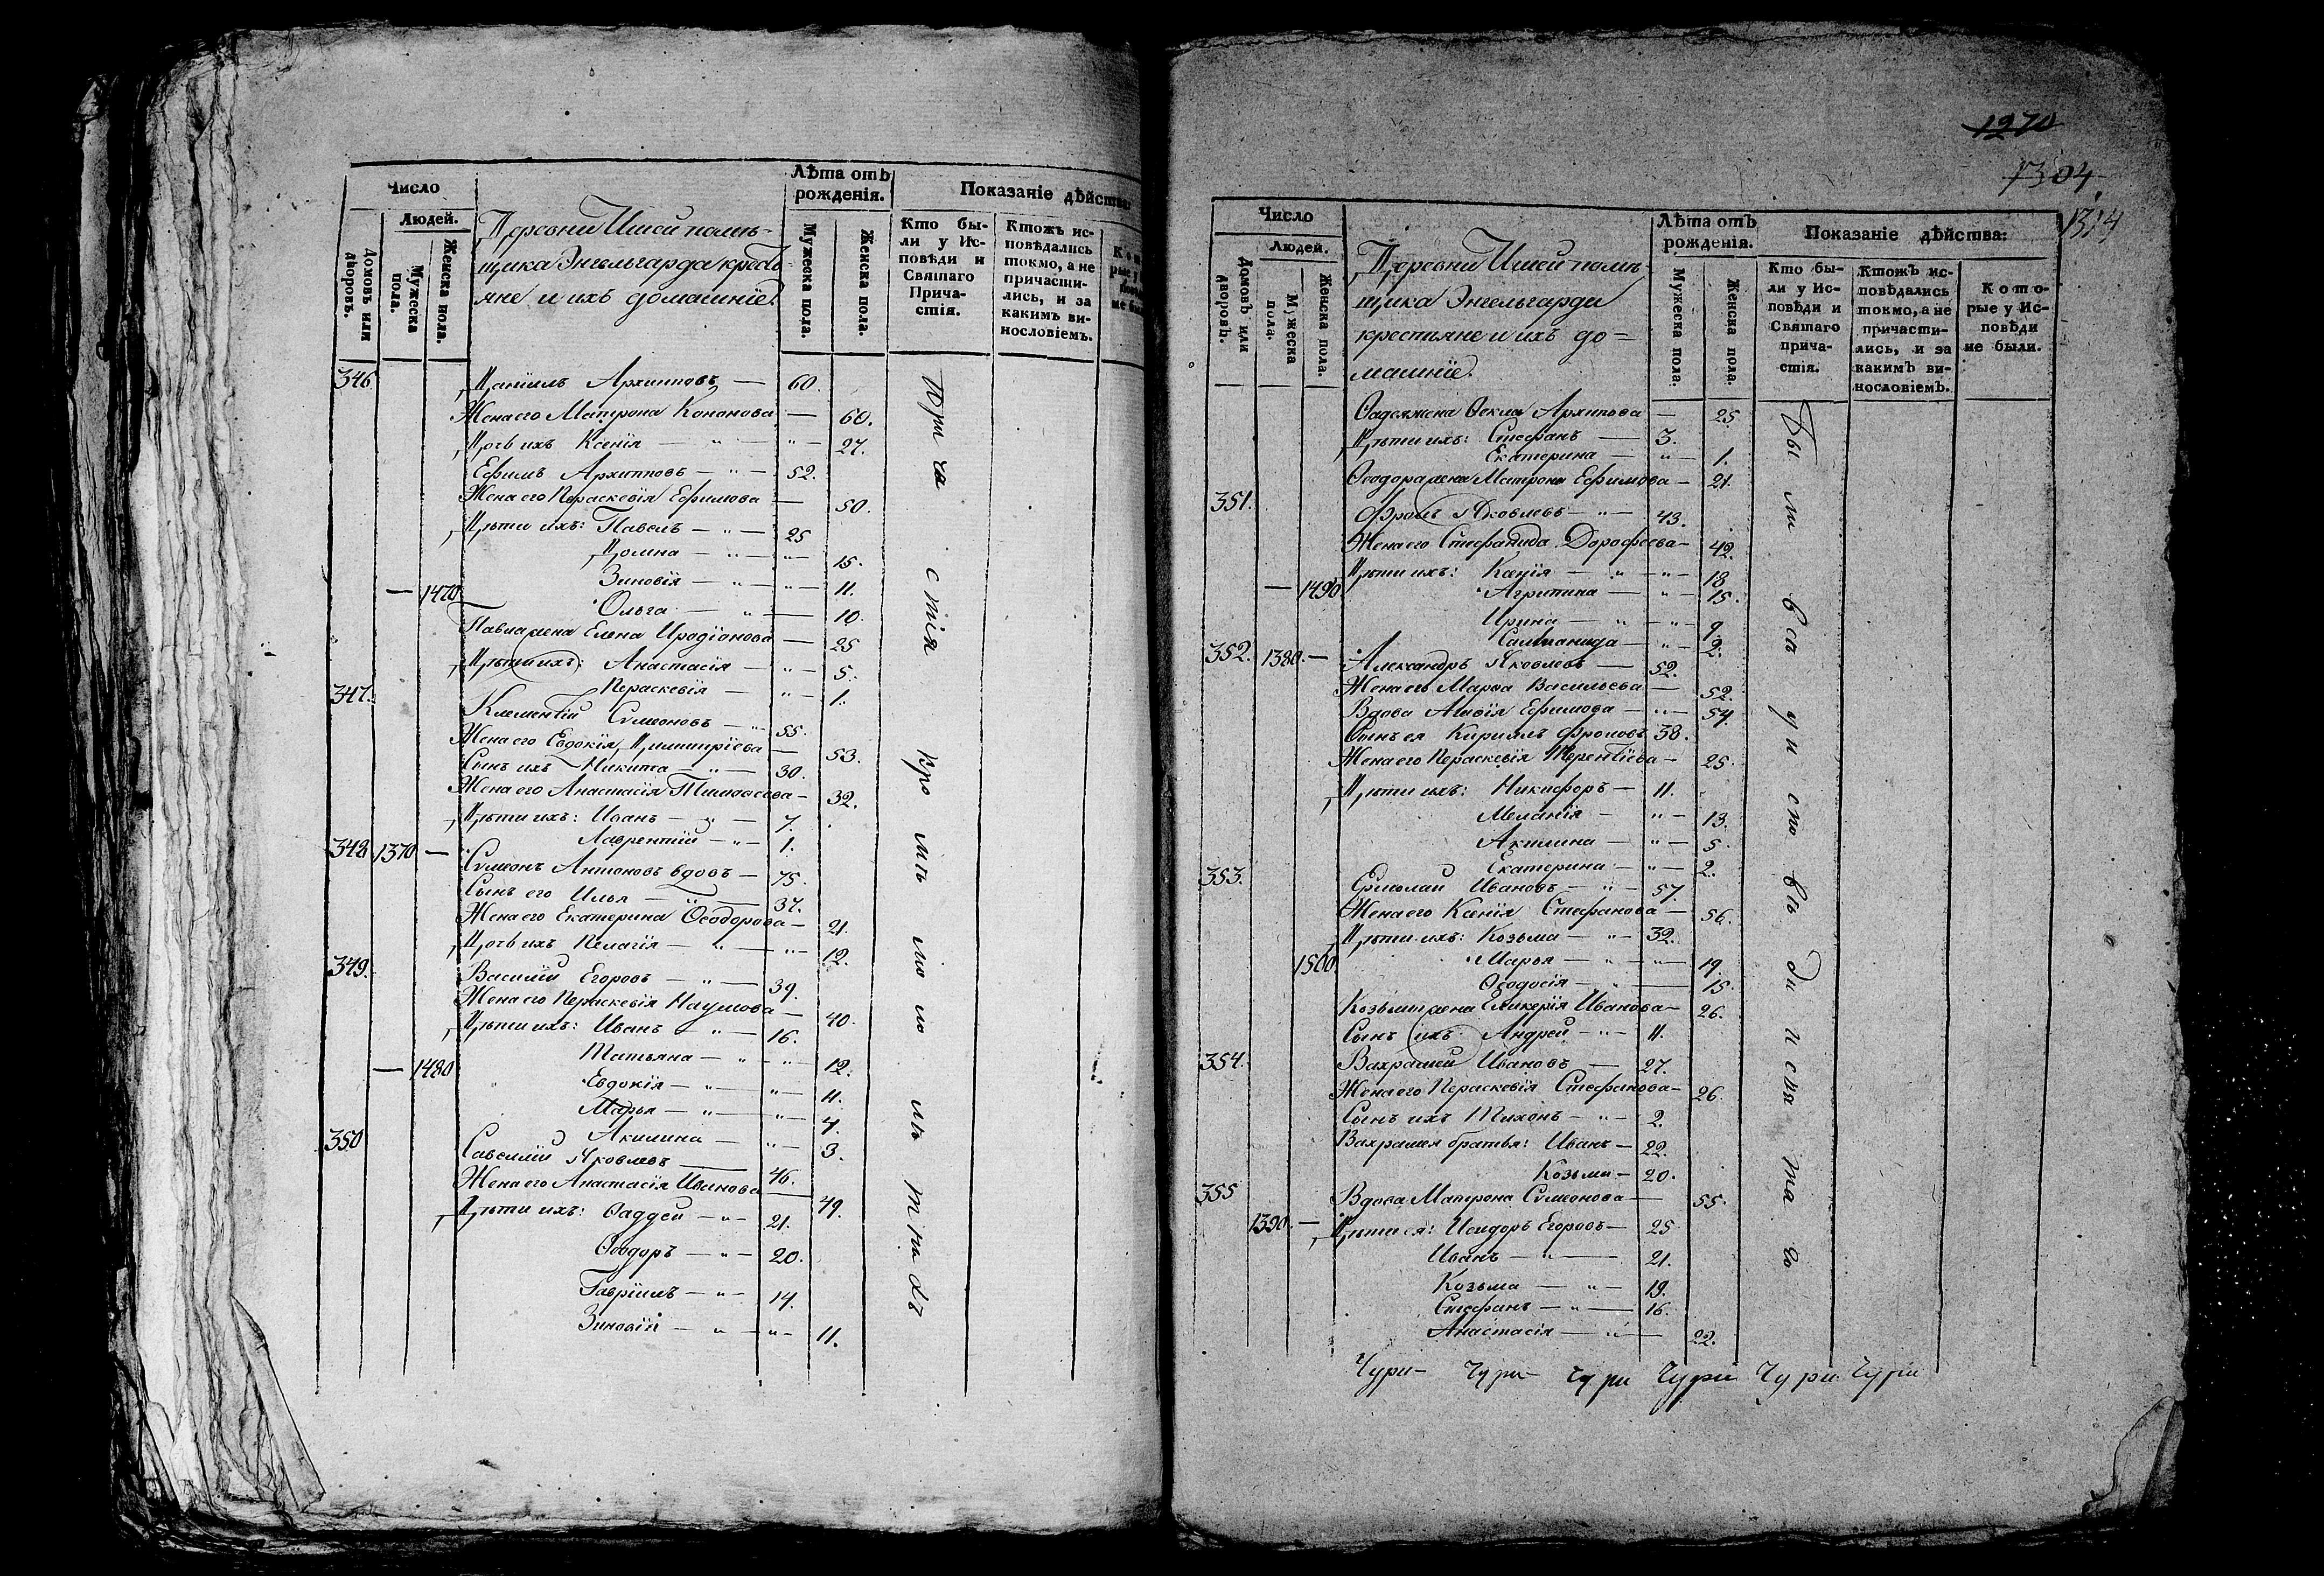 Число
Людей.
Домовъ или дворовъ.
Мужеска пола.
Женска пола.
Деревни Ишеи помѣ-
щика Энгельгарда кресть
яне и ихъ домашніе.
Лѣта отъ
рожденія.
Мужеска пола.
Женска пола.
Показаніе дѣйства:
Кто бы-
ли у Ис-
повѣди и
Святаго
Прича-
стія.
Ктожъ ис-
повѣдались
токмо, а не
причасти-
лись, и за
какимъ ви-
нословіемъ.
346 Даніилъ Архиповъ — 60.
Жена его Матрона Кононова — 60.
Дочь ихъ Ксенія — " — " — 27.
Ефимъ Архиповъ — " — 52.
Жена его Параскевія Ефимова — 50.
Дѣти ихъ: Павелъ — " — 25
Домна — " — " — 15.
Зиновія — " — " — 11.
— 1470 Ольга — " — 10.
Павла жена Елена Иродіонова — 25
Дѣти ихъ: Анастасія — " — 5.
Параскевія — " — 1.
347. Климентій Сѵмеоновъ — " 55.
Жена его Евдокія Димитріева — 53.
Сынъ ихъ Никита — " — 30.
Жена его Анастасія Тимофеева — 32.
Дѣти ихъ: Иванъ — " — 7.
Лаврентій — " — 1.
348 1370 — Сѵмеонъ Антоновъ вдовъ — 75.
Сынъ его Илья — " — 37.
Жена его Екатерина Ѳеодорова — 21.
Дочь ихъ Пелагія — " — " — 12.
349. Василій Егоровъ — " — 39.
Жена его Параскевія Наумова — 40.
Дѣти ихъ: Иванъ — " — 16.
Татьяна — " — " — 12.
— 1480 Евдокія — " — " — 11.
Марья — " — " — 7.
Акилина — " — 3.
350 Савелій Яковлевъ — 46.
Жена его Анастасія Иванова — 49.
Дѣти ихъ: Ѳаддей — " — 21.
Ѳеодоръ — " — 20.
Гавріилъ — " — 14.
Зиновія — " — " — 11.
При ча стія кро мѣ мо ло лѣ тны хъ
1270
1304.
1314
Число
Людей.
Домовъ или дворовъ.
Мужеска пола.
Женска пола.
Деревни Ишеи помѣ-
щика Энгельгарда
крестьяне и ихъ до=
машніе.
Лѣта отъ
рожденія.
Мужеска пола.
Женска пола.
Показаніе дѣйства:
Кто бы-
ли у Ис-
повѣди и
Святаго
прича-
стія.
Ктожъ ис-
повѣдались
токмо, а не
причасти-
лись, и за
какимъ ви-
нословіемъ.
Кото-
рые у Ис-
повѣди
не были.
Ѳадея жена Ѳекла Архипова — 25
Дѣти ихъ: Стефанъ — 3.
Екатерина — " — 1.
Ѳеодора жена Матрона Ефимова — 21.
351. Фролъ Яковлевъ — " — 43.
Жена его Стефанида Дорофеева — 42.
Дѣти ихъ: Ксенія — " — " — 18
— 1490 Агрипина — " — 15.
Ирина — " — " — 9.
Саломонида — " — 2.
352. 1380. — Александръ Яковлевъ — 52.
Жена его Марѳа Васильева — 52.
Вдова Агафія Ефимова — " — 54.
Сынъ ея Кириллъ Фроловъ 38.
Жена его Параскевія Терентіева — 25.
Дѣти ихъ: Никифоръ — 11.
Меланія — " — 13.
Акилина — " — 5.
Екатерина — " — 2.
353. Ермолай Ивановъ — " — 57.
Жена его Ксенія Стефанова — 56.
Дѣти ихъ: Козьма — " — 32.
1500. Марья — " — " — 19.
Ѳеодосія — " — 15.
Козьмы жена Гликерія Иванова — 26.
Сынъ ихъ Андрей — " — 11.
354. Вахрамей Ивановъ — 27.
Жена его Параскевія Стефанова — 26.
Сынъ ихъ Тихонъ — " — 2.
Вахрамея братья: Иванъ — 22.
Козьма — 20.
355 Вдова Матрона Сѵмеонова — 55.
1390. — Дѣти ея: Исидоръ Егоровъ — 25
Иванъ — " — 21.
Козьма — " — 19.
Стефанъ — " — 16.
Анастасія — " — 22.
Бы ли всѣ у и спо вѣ ди и свя та го
Чури- Чури- Чури Чури Чури Чури